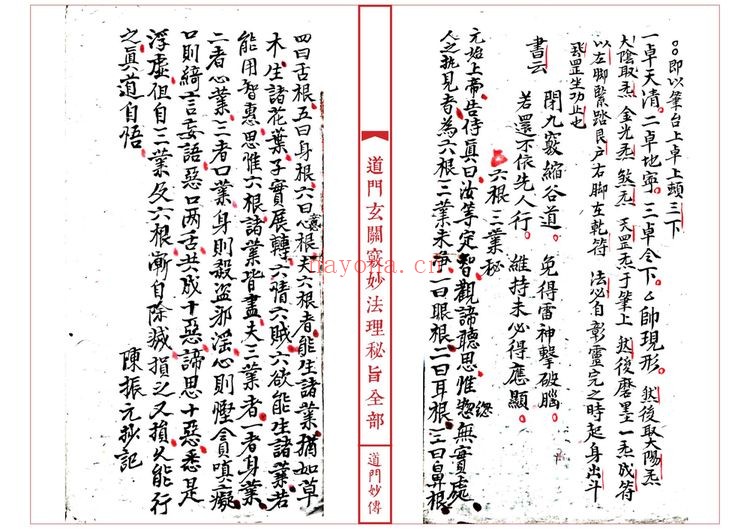 即以筆台上卓上頭三下
一卓天清。二卓地寧。三卓令下。帥現形。然後取大陽炁
大陰取炁 金光炁 煞炁 天罡炁于筆上 然後磨墨一炁成符
以左脚緊踏艮户右脚左乾符 法必自彰靈完之時起身出斗
罡坐功止也
書云 閉九竅縮谷道。 免得雷神擊破腦。
若還不依先人行。 維持未必得應顯。
六根三業秘
元始上帝告侍真曰汝等定智觀諦聽思惟總無實處
人之執見者為六根三業未淨一曰眼根二曰耳根三曰鼻根
道門玄關竅妙法理秘旨全部
道門妙傳
nayona.cn
四曰舌根五曰身根六曰心意根夫六根者能生諸業猶如草
木生諸花葉子實展轉六情六賊六欲能生諸業若
能用智惠思惟六根諸業皆盡夫三業者一者身業
二者心業三者口業身則殺盜邪淫心則慳貪嗔癡
口則綺言妄語惡口两舌共成十惡諦思十惡悉是
浮虛但自三業及六根漸自除滅損之又損久能行
之真道自悟
陳振元抄記